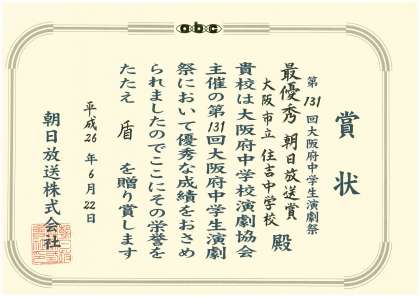 abc
賞状
第131回大阪府中学生演劇祭
最優秀 朝日放送賞
大阪市立 住吉中学校 殿
貴校は大阪府中学校演劇協会
主催の第131回大阪府中学生演劇
祭において優秀な成績をおさめ
られましたのでここにその栄誉を
たたえ 盾 を贈り賞します
平成26年6月22日
朝日放送株式会社